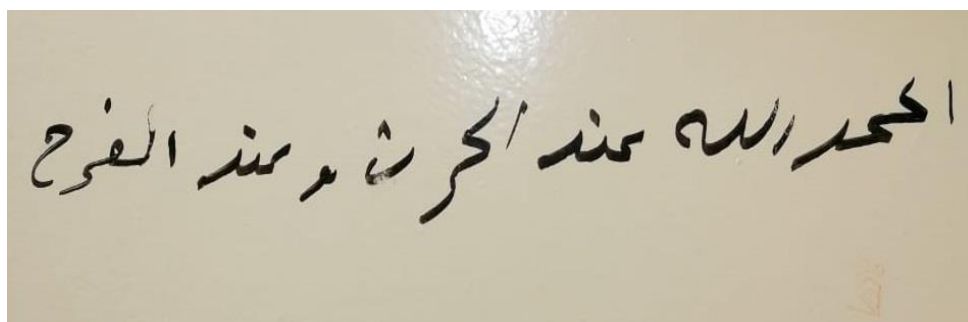 الحمد الله عند الحرث و عند الفرح